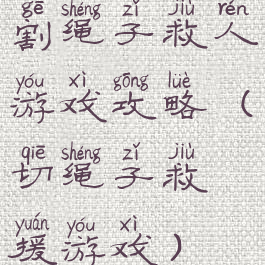 gē shéng zǐ jiù rén
割绳子救人
yóu xì gōng lüè
游戏攻略（
qiē shéng zǐ jiù
切绳子救
yuán yóu xì
援游戏）